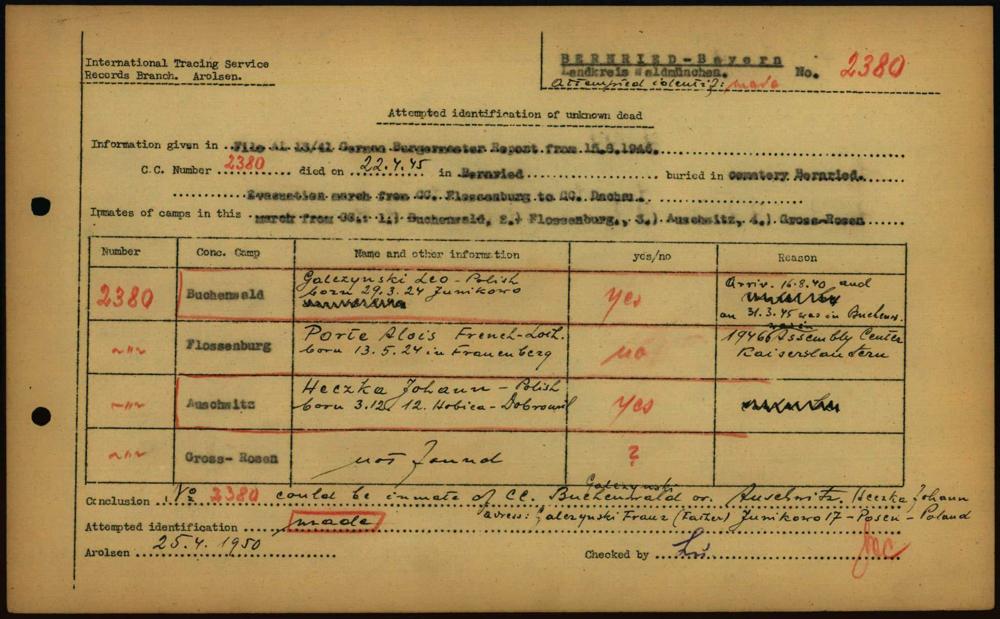 International Tracing Service
Records Branch. Arolsen.
BERNRIED-Bayern
Landkreis Waldmünchen.
No. 2380
Attempted identif: made
Attempted identification of unknown dead
Information given in File Al 13/41 German Burgermester Repost from 15.6.1946.
C.C. Number 2380 died on 22.4.45 in Bernried buried in cemetery Bernried.
Evacuation march from CC. Flossenburg to CC. Dachau.
Inmates of camps in this march from CC.: 1.) Buchenwald, 2.) Flossenburg., 3.) Auschwitz, 4.) Gross-Rosen
Number Conc. Camp Name and other information yes/no Reason
2380 Buchenwald Galczynski Leo - Polish
born 29.3.24 Junikowo
yes
Arriv. 16.8.40 and
on 31.3.45 was in Buchenw.
-"- Flossenburg Porte Alois French-Loth.
born 13.5.24 in Frauenberg
no
1946 Assembly Center
Kaiserslautern
-"- Auschwitz Heczka Johann - Polish
born 3.12.12. Hobica-
yes
-"- Gross-Rosen not found ?
Galczynski
Conclusion No 2380 could be inmate of CC. Buchenwald or. Auschwitz. Heczka Johann
adress: Galczynski Franz (Father) Junikowo 17 - Posen - Poland
Attempted identification made
Arolsen 25.4.1950 Checked by